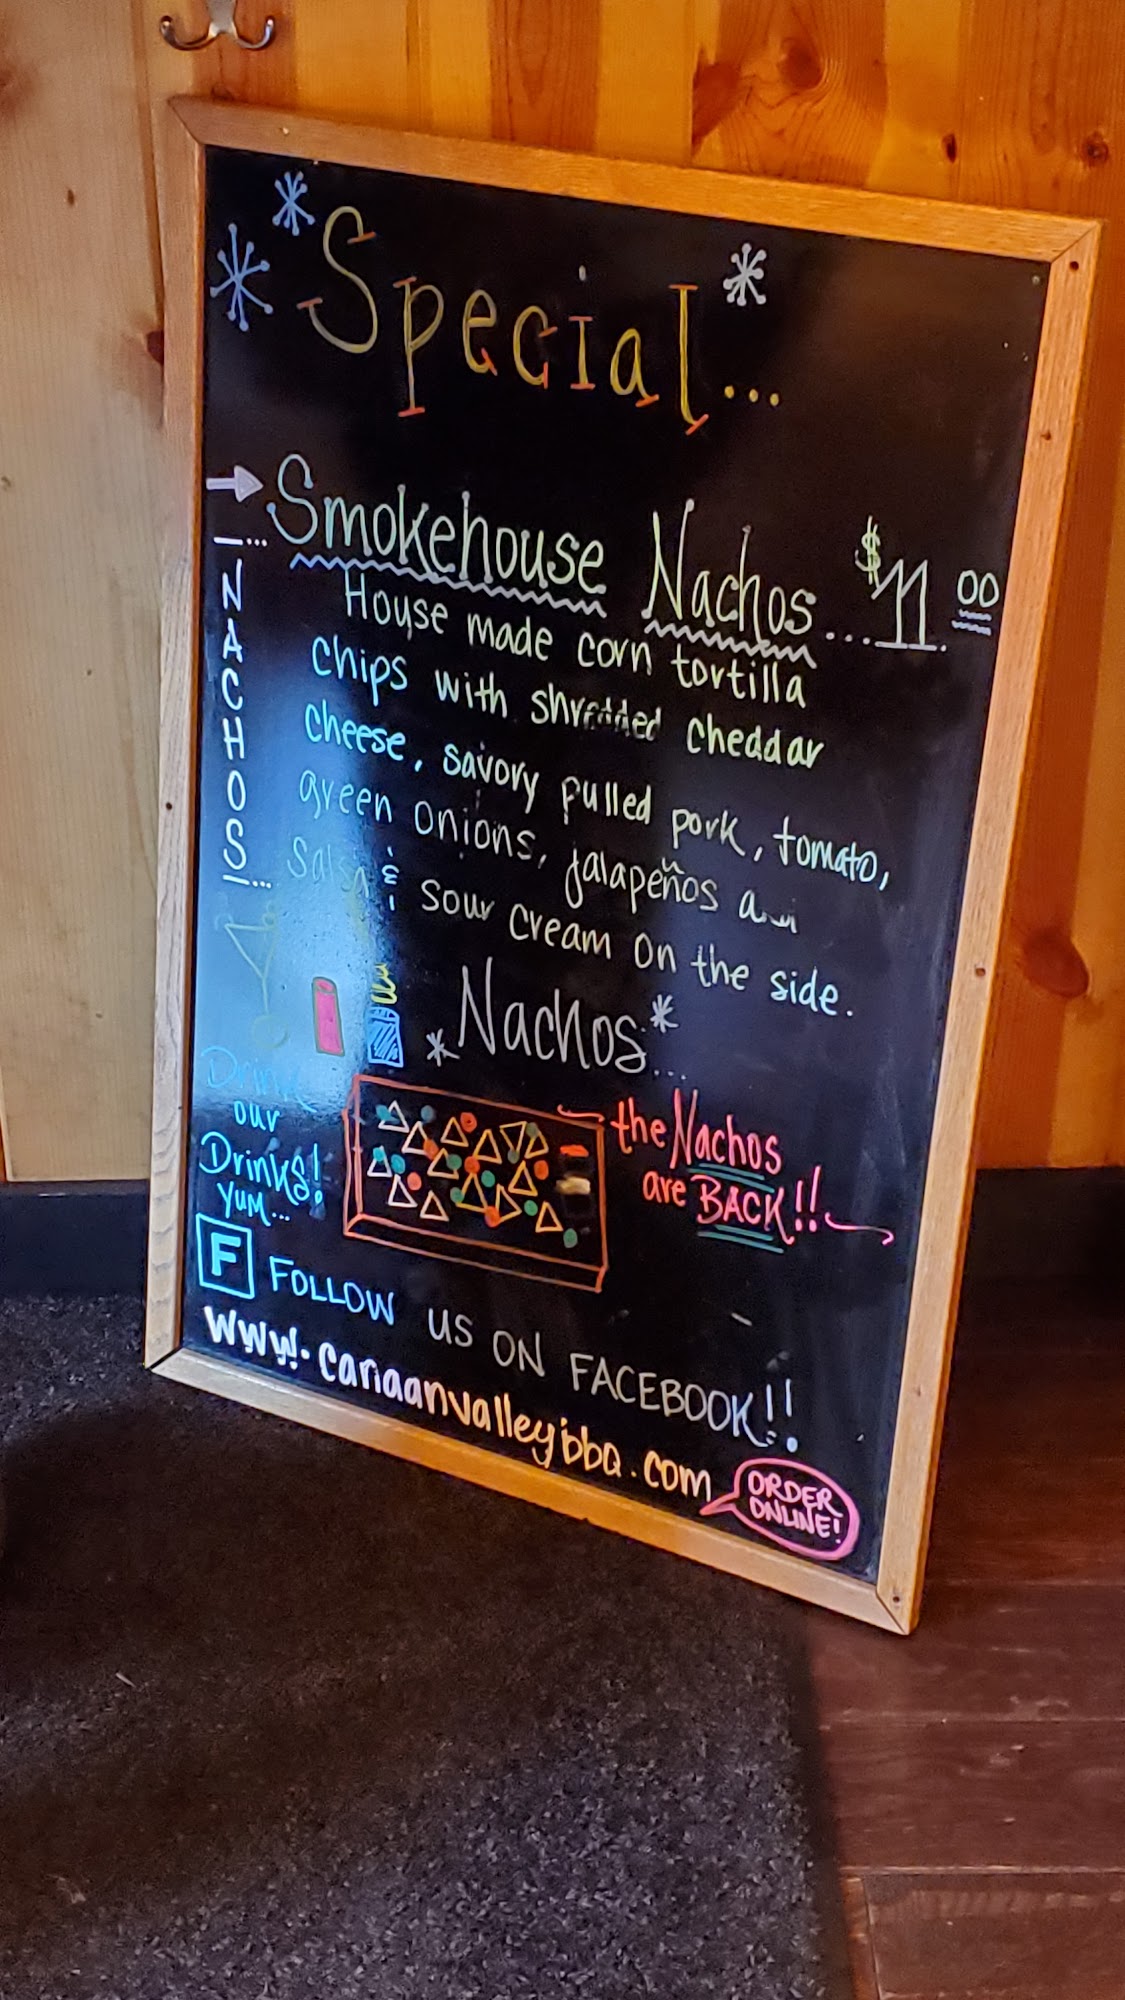 Special...
Smokehouse Nachos... $11.00
NACHOS...
House made corn tortilla
chips with shredded cheddar
cheese, savory pulled pork, tomato,
green onions, jalapeños and
salsa & sour cream on the side.
*Nachos*...
Drink
our
Drinks!
YUM...
the Nachos
are BACK!!
F FOLLOW US ON FACEBOOK!!
www.canaanvalleybbq.com
ORDER
ONLINE!